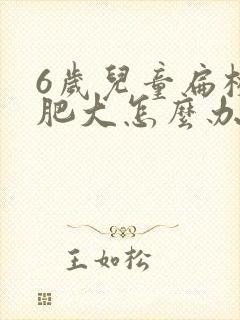 6歲兒童扁
肥大怎麼办
王如松